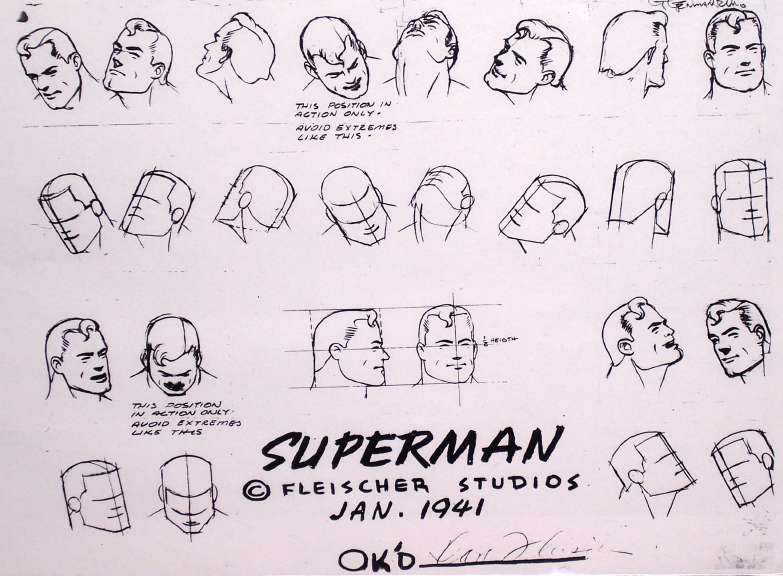 THIS POSITION IN
ACTION ONLY.
AVOID EXTREMES
LIKE THIS.
½ HEIGTH
THIS POSITION
IN ACTION ONLY.
AVOID EXTREMES
LIKE THIS
SUPERMAN
© FLEISCHER STUDIOS
JAN. 1941
OK'D